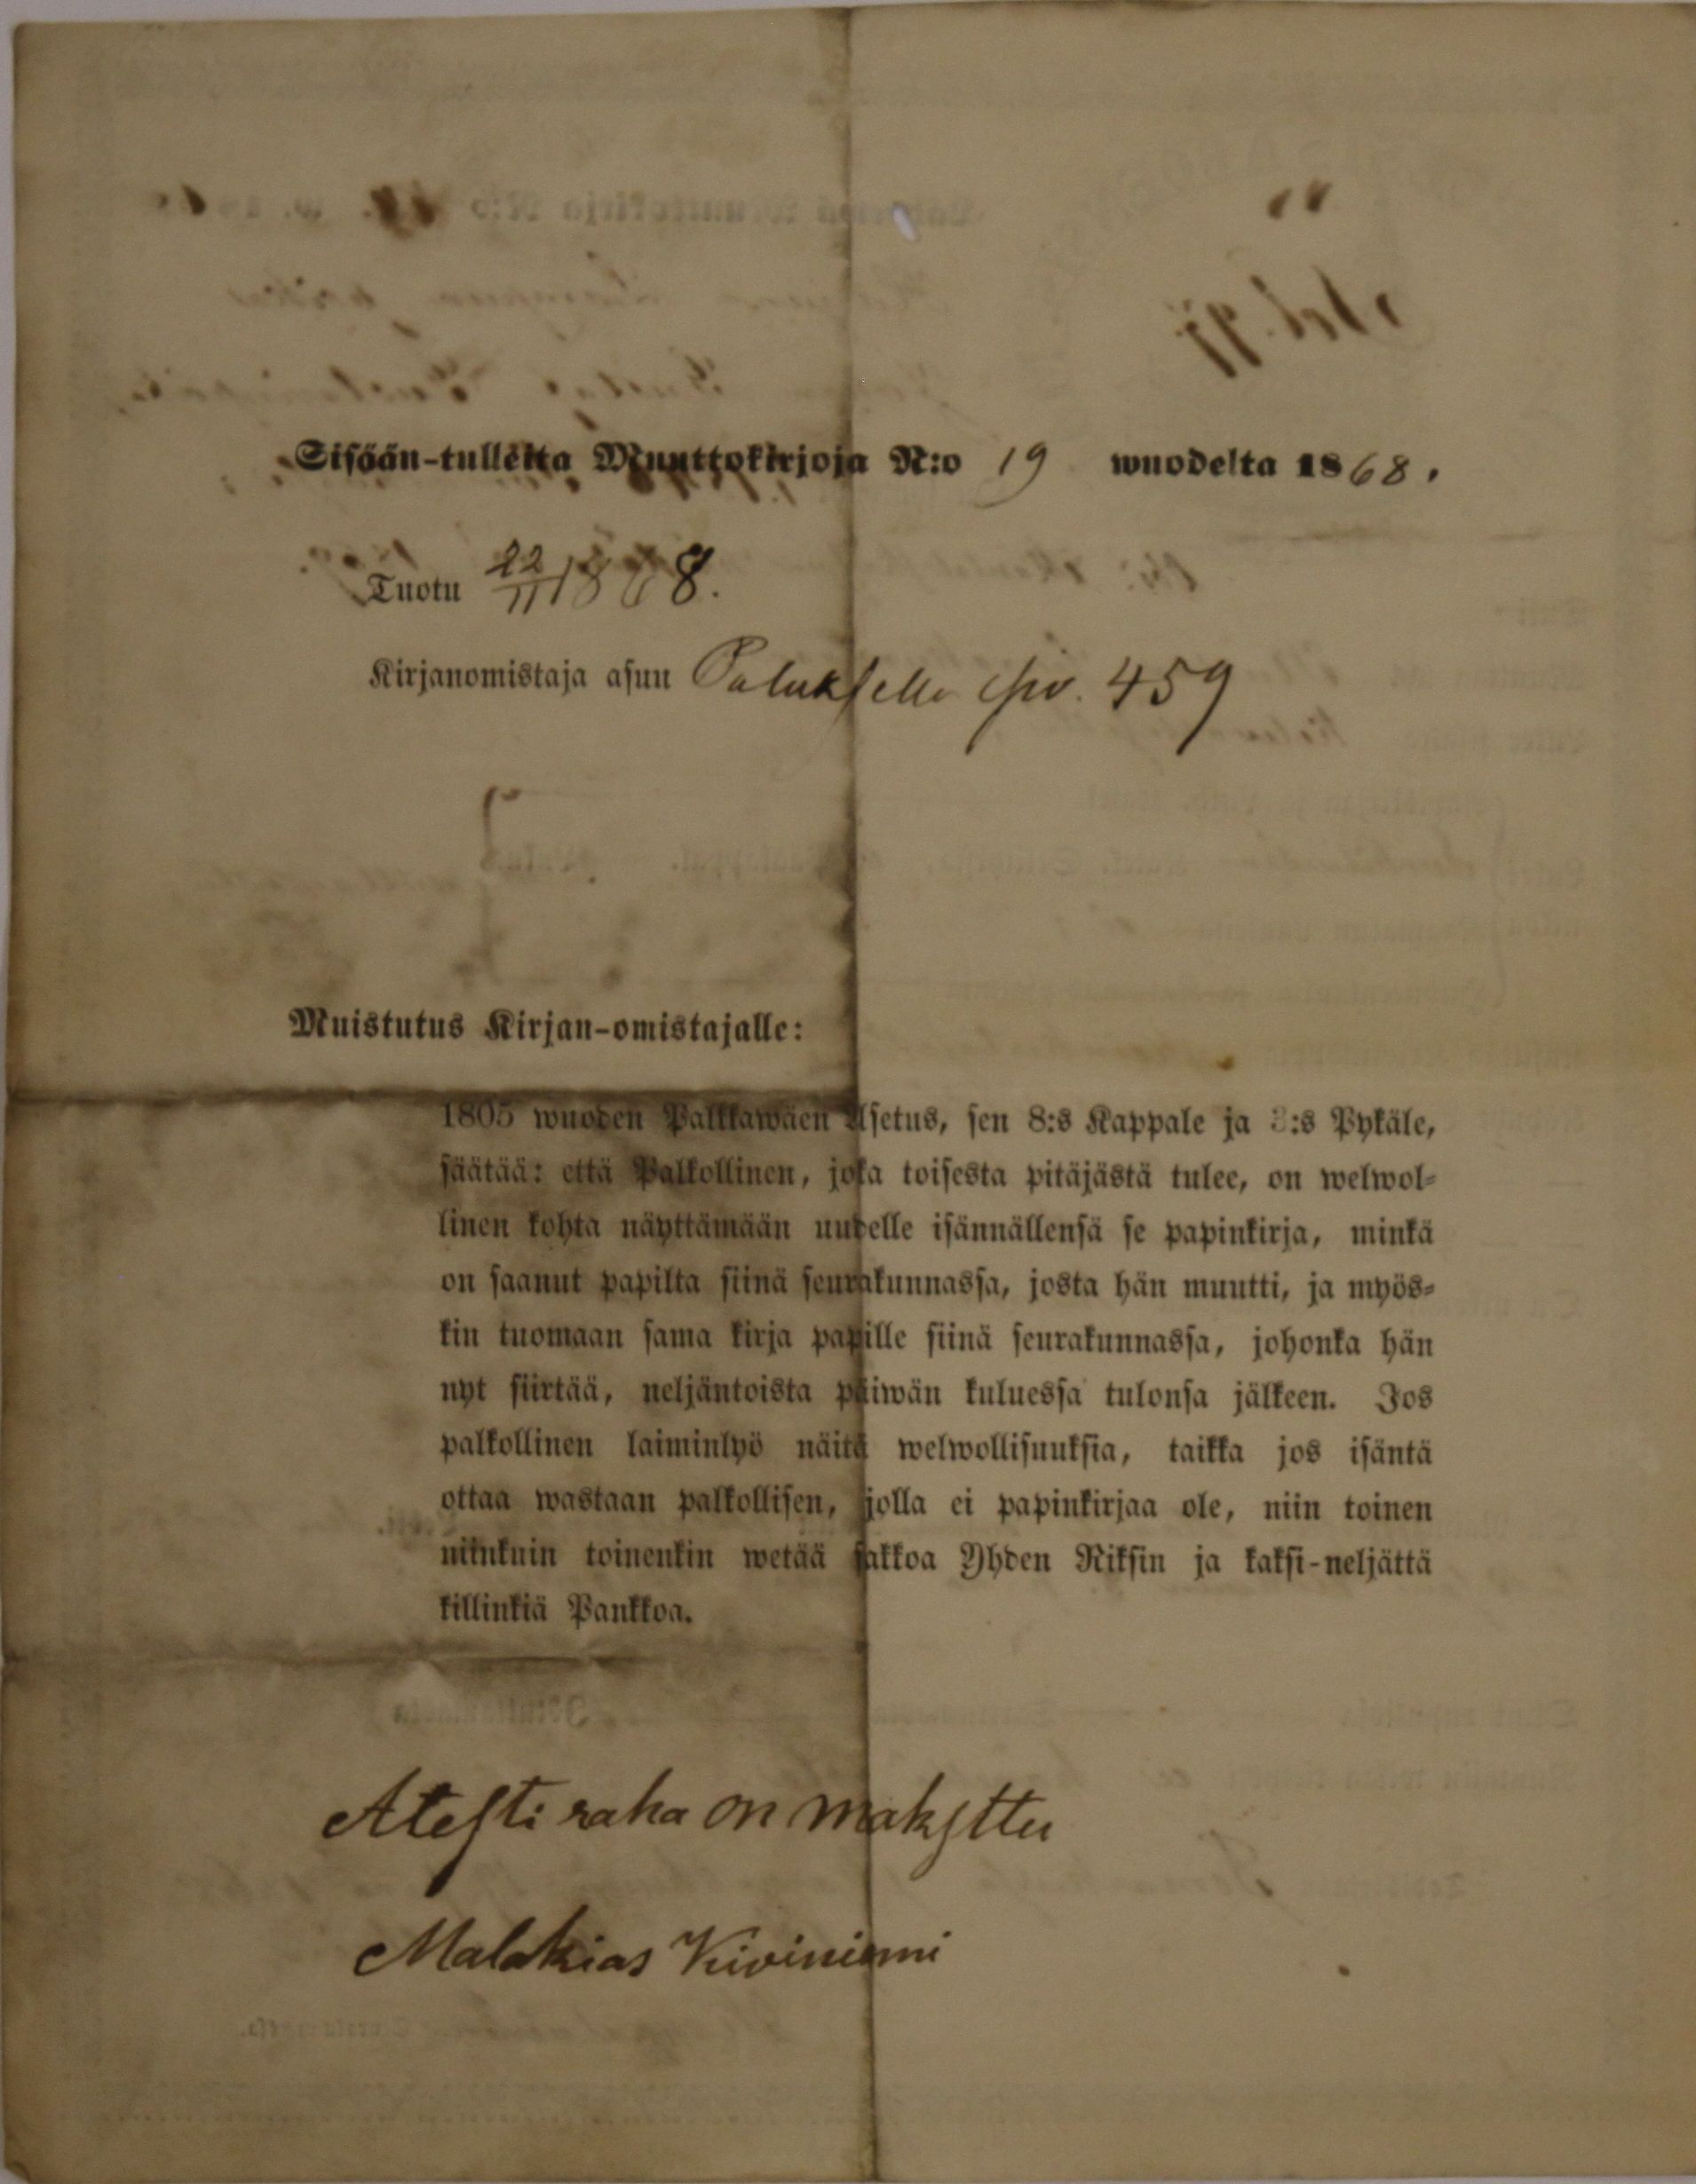 Sisään-tulleita Muuttokirjoja N:o 19 wuodelta 1868.
Tuotu 22/11 1868.
Kirjanomistaja asuu siv. 459
Muistutus Kirjan-omistajalle:
1805 wuoden Palkkawäen Asetus, sen 8:s Kappale ja 3:s Pykäle,
säätää: että Palkollinen, joka toisesta pitäjästä tulee, on welwol-
linen kohta näyttämään uudelle isännällensä se papinkirja, minkä
on saanut papilta siinä seurakunnassa, josta hän muutti, ja myös-
kin tuomaan sama kirja papille siinä seurakunnassa, johonka hän
nyt siirtää, neljäntoista päiwän kuluessa tulonsa jälkeen. Jos
palkollinen laiminlyö näitä welwollisuuksia, taikka jos isäntä
ottaa wastaan palkollisen, jolla ei papinkirjaa ole, niin toinen
niinkuin toinenkin wetää sakkoa Yhden Riksin ja kaksi-neljättä
killinkiä Pankkoa.
Atesti raha on maksttu
Malakias Kiviniemi